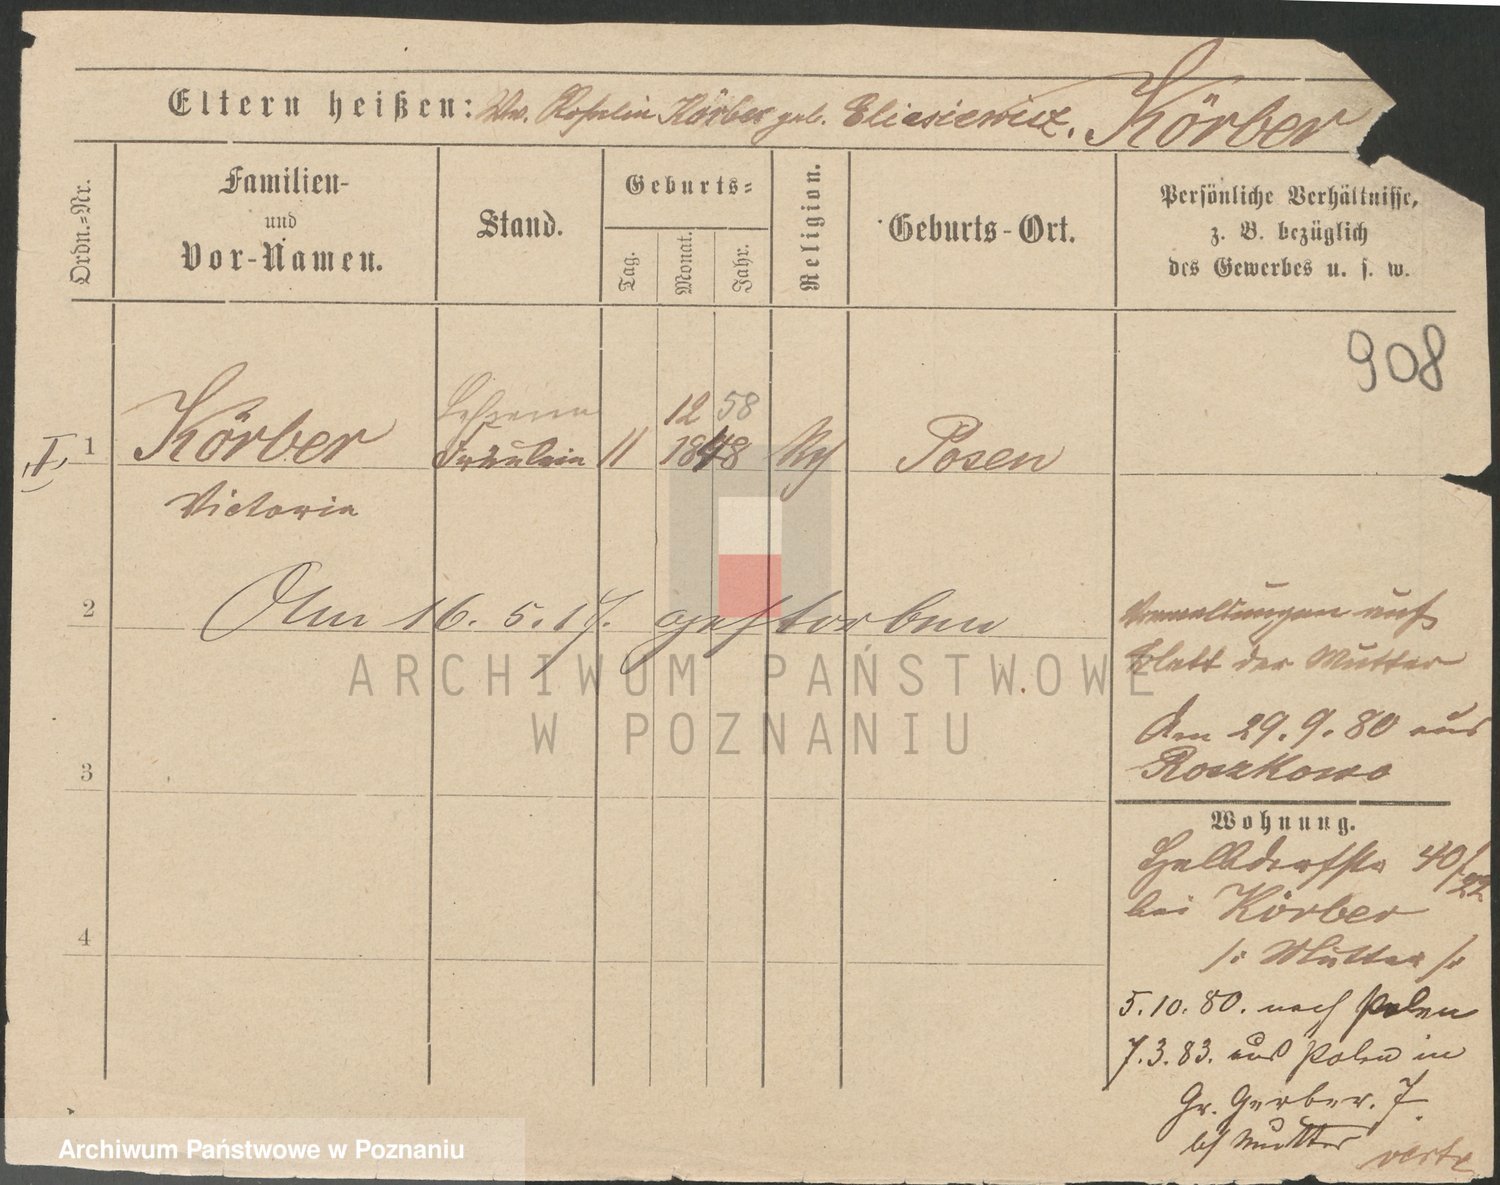 Eltern heißen: Ww. Rosalia Körber geb. Eliasiewicz. Körber
Ordn.=Nr.
Familien-
und
Vor-Namen.
Stand.
Geburts=
Tag.
Monat.
Jahr.
Religion.
Geburts-Ort.
Persönliche Verhältnisse,
z. B. bezüglich
des Gewerbes u. s. w.
908
Lehrerin 12 58
I 1 Körber Fräulein 11 1848 Posen
Victoria
2 Am 16. 5. 17. gestorben
auf
Blatt der Mutter
den 29. 9. 80 aus
Roszkowo
3
Wohnung.
40/22
bei Körber
/: Mutter :/
4
5. 10. 80. nach Polen
7. 3. 83. aus Polen in
Gr. Gerber. 7
b/ Mutter
verte
ARCHIWUM PAŃSTWOWE
W POZNANIU
Archiwum Państwowe w Poznaniu